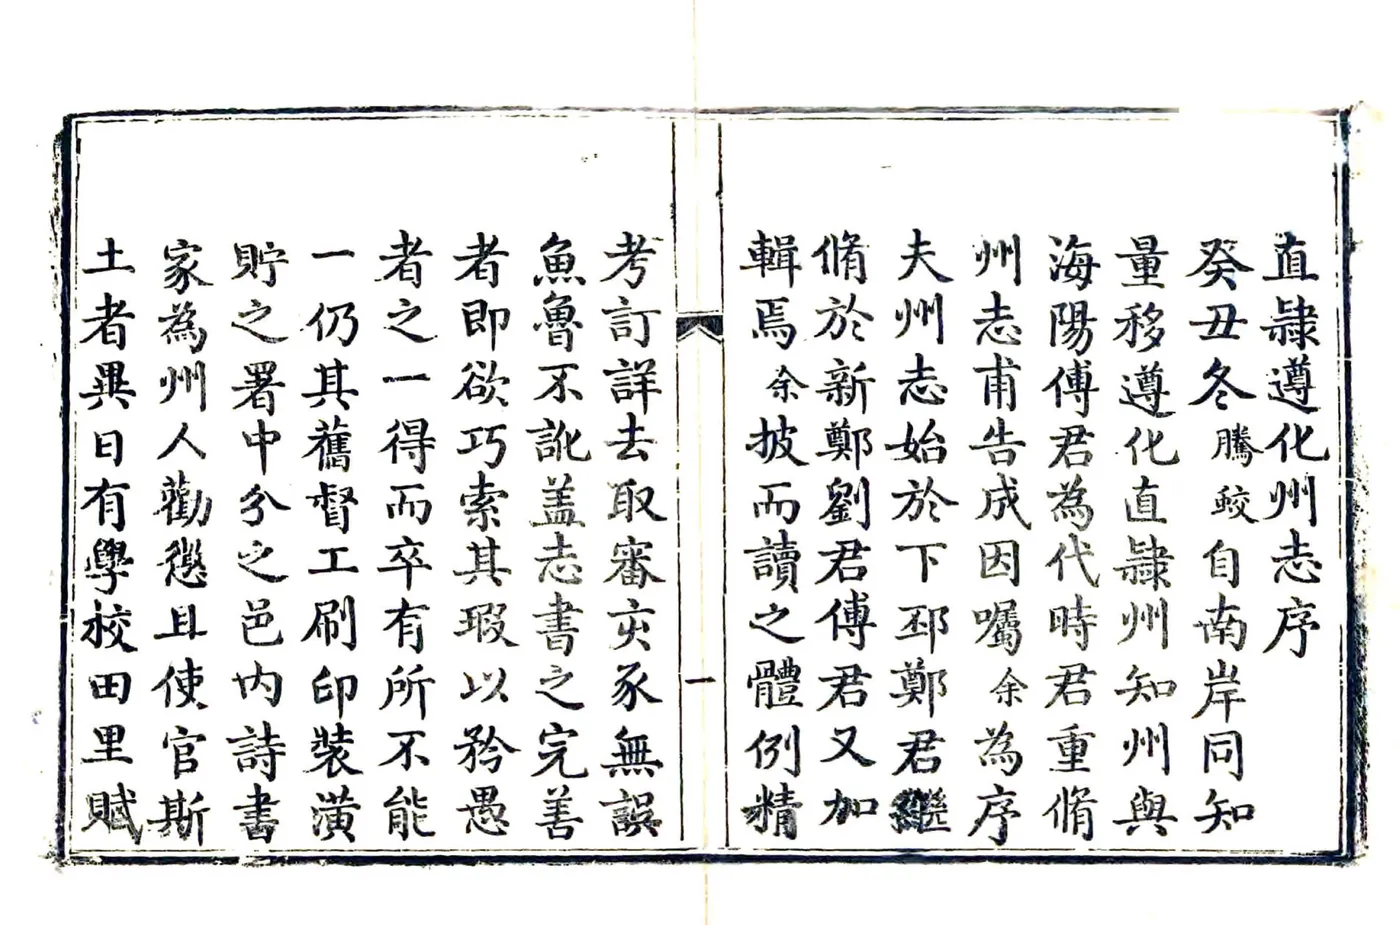 直隸遵化州志序
癸丑冬騰蛟自南岸同知
量移遵化直隸州知州與
海陽傅君為代時君重脩
州志甫告成因囑余為序
夫州志始於下邳鄭君繼
脩於新鄭劉君傅君又加
輯焉余披而讀之體例精
一
考訂詳去取審亥豕無誤
魚魯不訛盖志書之完善
者即欲巧索其瑕以矜愚
者之一得而卒有所不能
一仍其舊督工刷印裝潢
貯之署中分之邑内詩書
家為州人勸懲且使官斯
土者異日有學校田里賦